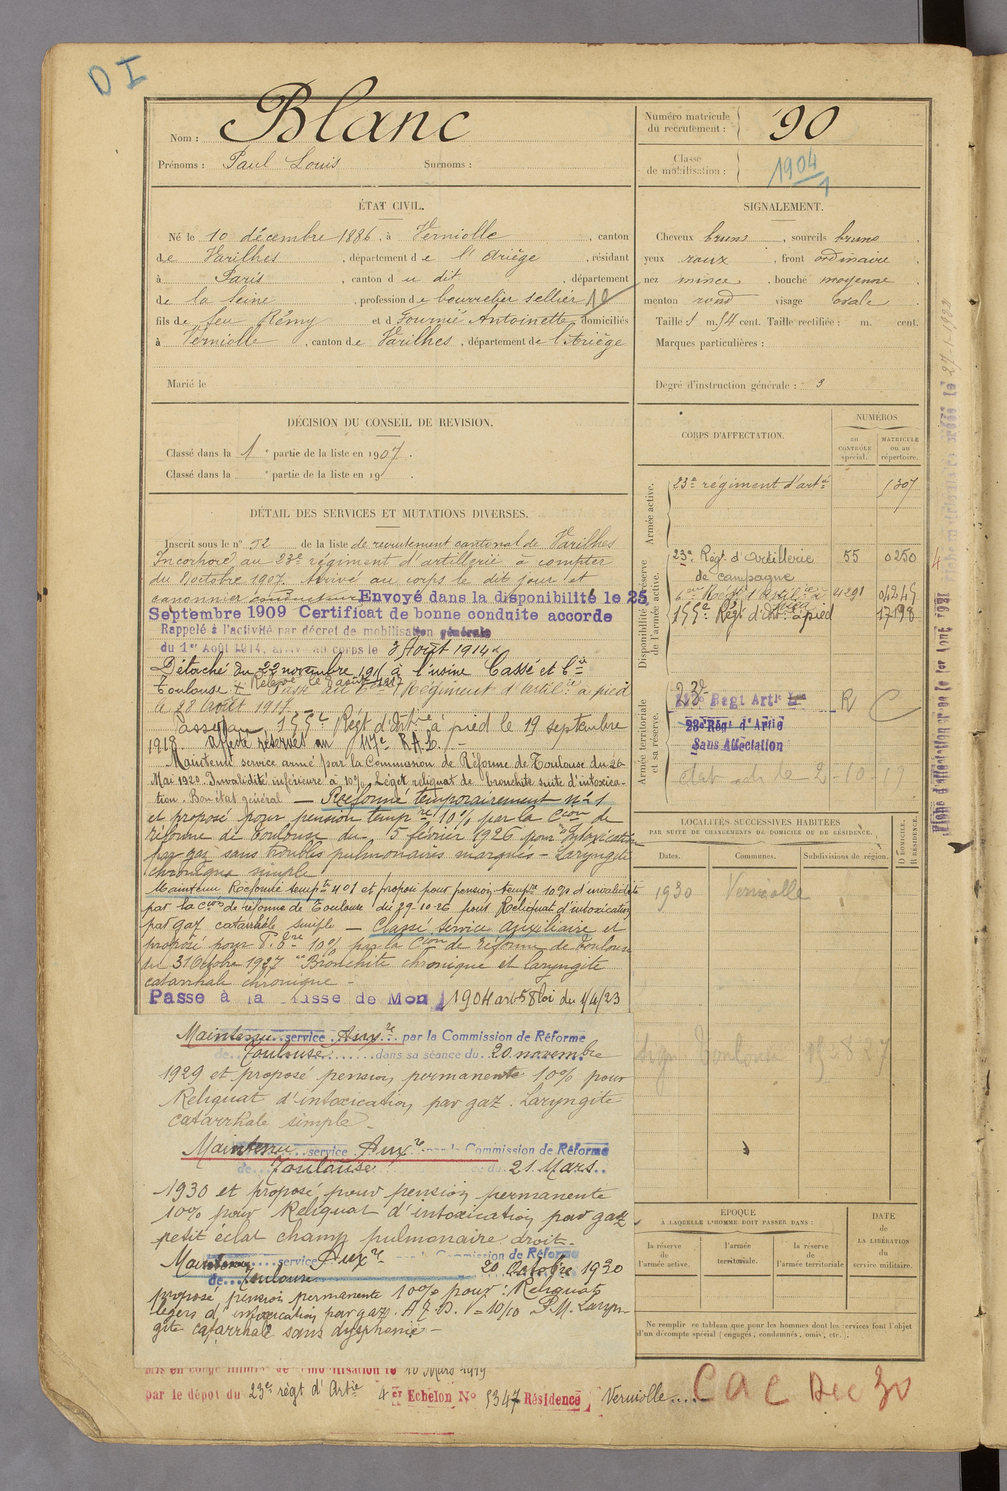 D I
Nom : Blanc
Prénoms : Paul Louis Surnoms :
Numéro matricule du recrutement : 90
Classe de mobilisation : 1904
ÉTAT CIVIL.
Né le 10 décembre 1886, à Verniolle, canton
de Varilhes, département de l'Ariège, résidant
à Paris, canton du dit, département
de la Seine, profession de bourrelier sellier
fils de feu Rémy et de Fournié Antoinette domiciliés
à Verniolle, canton de Varilhes, département de l'Ariège
Marié le
SIGNALEMENT.
Cheveux bruns, sourcils bruns
yeux roux, front ordinaire
nez mince, bouche moyenne
menton rond visage ovale
Taille 1 m. 54 cent. Taille rectifiée : m. cent.
Marques particulières :
Degré d'instruction générale : 3
DÉCISION DU CONSEIL DE REVISION.
Classé dans la 1e partie de la liste en 1907.
Classé dans la e partie de la liste en 19
DÉTAIL DES SERVICES ET MUTATIONS DIVERSES.
Inscrit sous le n° 52 de la liste de recrutement cantonal de Varilhes
Incorporé au 23e régiment d'artillerie à compter
du 8 octobre 1907. Arrivé au corps le dit jour et
canonnier conducteur Envoyé dans la disponibilité le 25
Septembre 1909 Certificat de bonne conduite accorde
Rappelé à l'activité par décret de mobilisation générale
du 1er Août 1914, arrivé au corps le 3 Août 1914
Détaché du 22 novembre 1915 à l'usine Cassé et Cie
Toulouse Relevé le 8 août 1917 Passé au Régiment d'artie à pied
le 28 Août 1917.
Passé au 155e Régt d'Artie à pied le 19 septembre
1918. Affecté réservé au 117e R.A.L.
Maintenu service armé par la Commission de Réforme de Toulouse du 26
Mai 1920. Invalidité inférieure à 10% Léger reliquat de bronchite suite d'intoxica-
tion. Bon état général — Réformé temporairement n° 1
et proposé pour pension tempre 10% par la Con de
réforme de Toulouse du 5 février 1926 pour Intoxication
par gaz sans troubles pulmonaires marqués – Laryngite
chronique simple
Maintenu Réformé tempre n° 1 et proposé pour pension tempre 10% d'invalidité
par la Con de réforme de Toulouse du 29-10-26 pour Reliquat d'intoxication
par gaz catarrhale simple – Classé service auxiliaire et
proposé pour P. Tre 10% par la Con de réforme de Toulouse
du 31 Octobre 1927 "Bronchite chronique et laryngite
catarrhale chronique –
Passe à la classe de Mob 1904 art 58 loi du 1/4/23
Maintenu service Auxre par la Commission de Réforme
de Toulouse dans sa séance du 20 novembre
1929 et proposé pension permanente 10% pour
Reliquat d'intoxication par gaz. Laryngite
catarrhale simple –
Maintenu service Auxre Commission de Réforme
de Toulouse 21 Mars
1930 et proposé pour pension permanente
10% pour Reliquat d'intoxication par gaz
petit éclat champ pulmonaire droit –
Maintenu service Auxre Commission de Réforme
de Toulouse 20 octobre 1930
proposé pension permanente 10% pour : Reliquats
légers d'intoxication par gaz. V = 10/10 Laryn-
gite catarrhale sans dysphonie –
10 Mars 1919
par le dépot du 23e régt d'Artie 4er Echelon N° 5347 Résidence Verniolle
CORPS D'AFFECTATION.
NUMÉROS
AU CONTRÔLE spécial.
MATRICULE ou au répertoire.
Armée active.
23e régiment d'artie 1307
Disponibilité et réserve de l'armée active.
23e Régt d'artillerie de campagne 55 0250
155e Régt d'Artie à pied 17198
Armée territoriale et sa réserve.
23e Régt Artie R C
23e Régt d'Artie
Sans Affectation
LOCALITÉS SUCCESSIVES HABITÉES
PAR SUITE DE CHANGEMENTS DE DOMICILE OU DE RÉSIDENCE.
Dates. Communes. Subdivisions de région. D DOMICILE. R RÉSIDENCE.
1930 Verniolle
EPOQUE
A LAQUELLE L'HOMME DOIT PASSER DANS :
la réserve de l'armée active.
l'armée territoriale.
la réserve de l'armée territoriale
DATE de LA LIBÉRATION du service militaire.
Ne remplir ce tableau que pour les hommes dont les services font l'objet
d'un décompte spécial (engagés, condamnés, omis, etc.).
CAC Dec 30